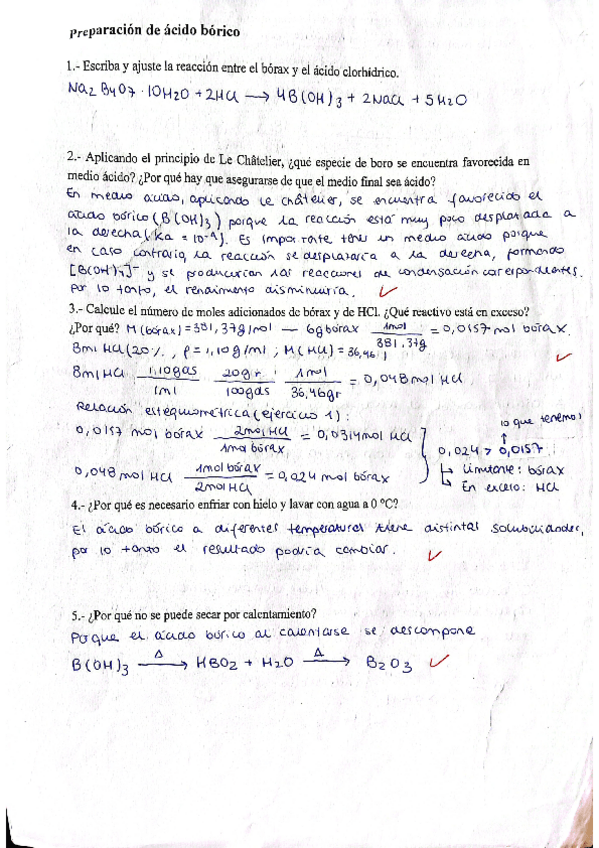 Preparación de ácido bórico
1.- Escriba y ajuste la reacción entre el bórax y el ácido clorhídrico.
Na2 B4O7 · 10H2O + 2HCl → 4B(OH)3 + 2NaCl + 5H2O
2.- Aplicando el principio de Le Châtelier, ¿qué especie de boro se encuentra favorecida en
medio ácido? ¿Por qué hay que asegurarse de que el medio final sea ácido?
En medio ácido, aplicando Le châtelier, se encuentra favorecido el
ácido bórico (B(OH)3) porque la reacción está muy poco desplazada a
la derecha (Ka = 10⁻⁹). Es importante tener un medio ácido porque
en caso contrario, la reacción se desplazaría a la derecha, formando
[B(OH)4]⁻ y se producirían las reacciones de condensación correspondientes.
Por lo tanto, el rendimiento disminuiría.
3.- Calcule el número de moles adicionados de bórax y de HCl. ¿Qué reactivo está en exceso?
¿Por qué? M(bórax) = 381,37g/mol — 6g bórax 1mol/381,37g = 0,0157 mol bórax.
8ml HCl (20%, ρ = 1,10g/ml; M(HCl) = 36,46)
8ml HCl 1,10gdis/1ml 20gr/100gdis 1mol/36,46gr = 0,048 mol HCl
Relación estequiométrica (ejercicio 1):
lo que tenemos
↑
0,0157 mol bórax 2mol HCl/1mol bórax = 0,0314mol HCl
0,024 > 0,0157
↳ Limitante: bórax
0,048 mol HCl 1mol bórax/2mol HCl = 0,024 mol bórax
↳ En exceso: HCl
4.- ¿Por qué es necesario enfriar con hielo y lavar con agua a 0 ºC?
El ácido bórico a diferentes temperaturas tiene distintas
por lo tanto el resultado podría cambiar.
5.- ¿Por qué no se puede secar por calentamiento?
Porque el ácido bórico al calentarse se descompone
B(OH)3 —Δ→ HBO2 + H2O —Δ→ B2O3